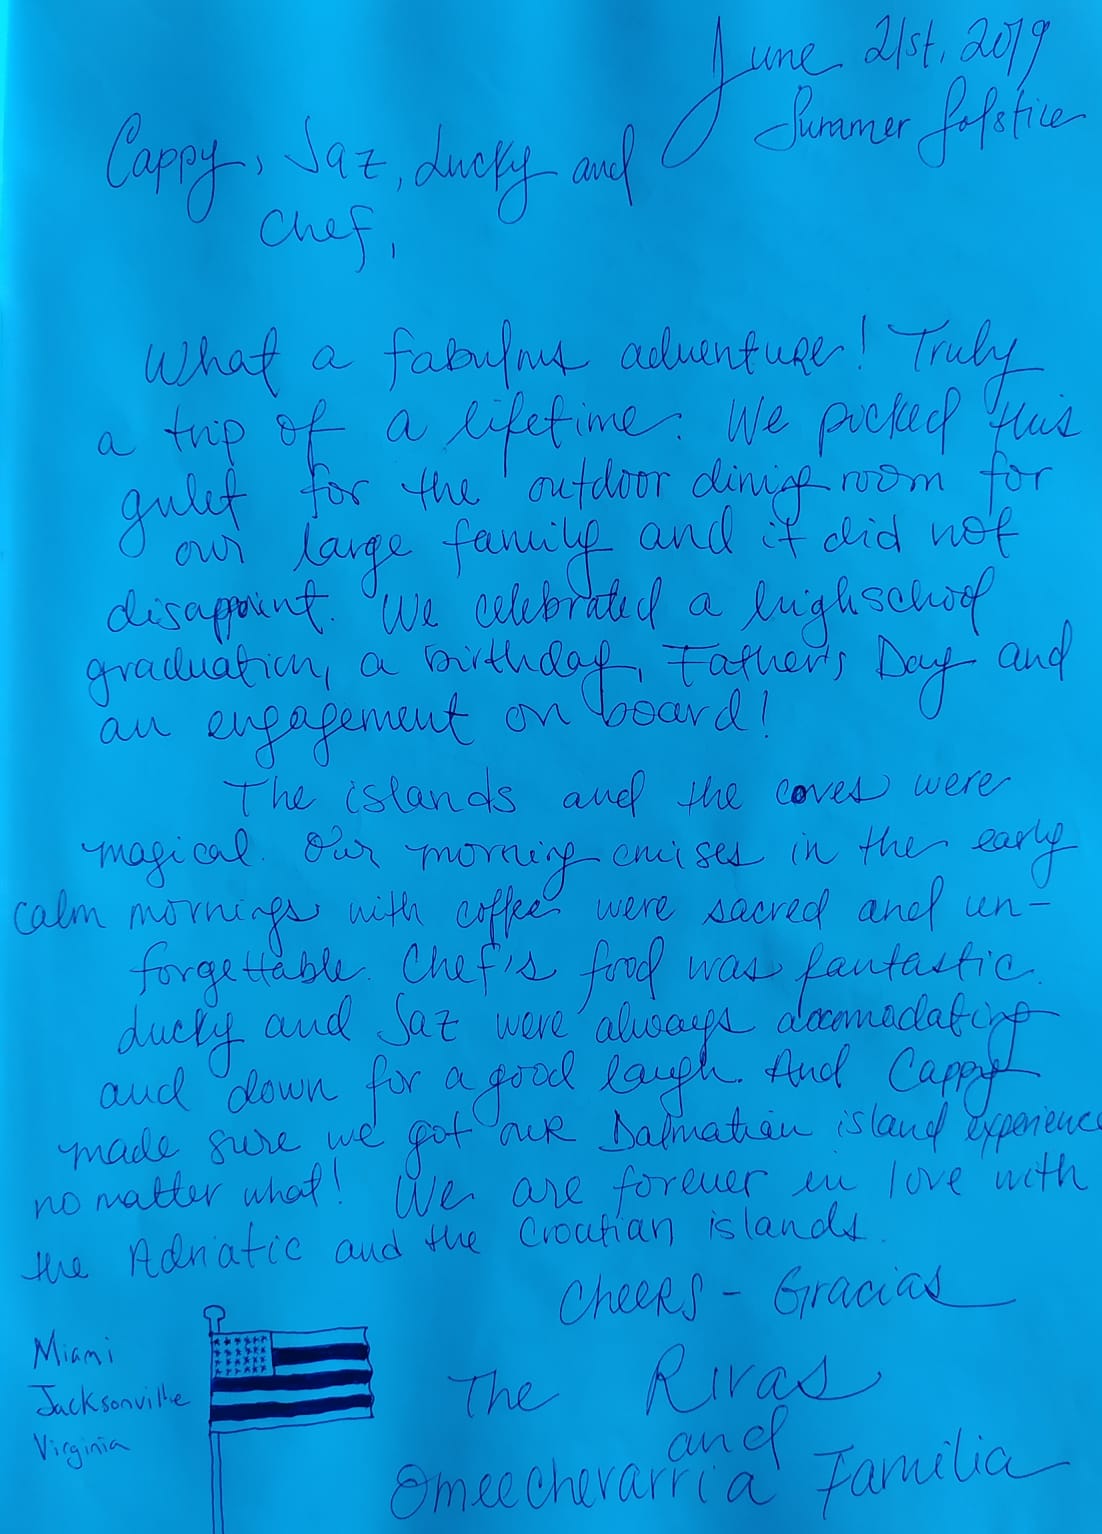 June 21st, 2019
Summer Solstice
Cappy, Jaz, Lucky and
Chef,
What a fabulous adventure! Truly
a trip of a lifetime. We picked this
gulet for the outdoor dining room for
our large family and it did not
disappoint. We celebrated a highschool
graduation, a birthday, Father's Day and
an engagement on board!
The islands and the coves were
magical. Our morning cruises in the early
calm mornings with coffee were sacred and un-
forgettable. Chef's food was fantastic.
Lucky and Jaz were always accomodating
and down for a good laugh. And Cappy
made sure we got our Dalmatian island experience
no matter what! We are forever in love with
the Adriatic and the Croatian islands.
Cheers - Gracias
The Rivas
and
Omeechevarria Familia
Miami
Jacksonville
Virginia